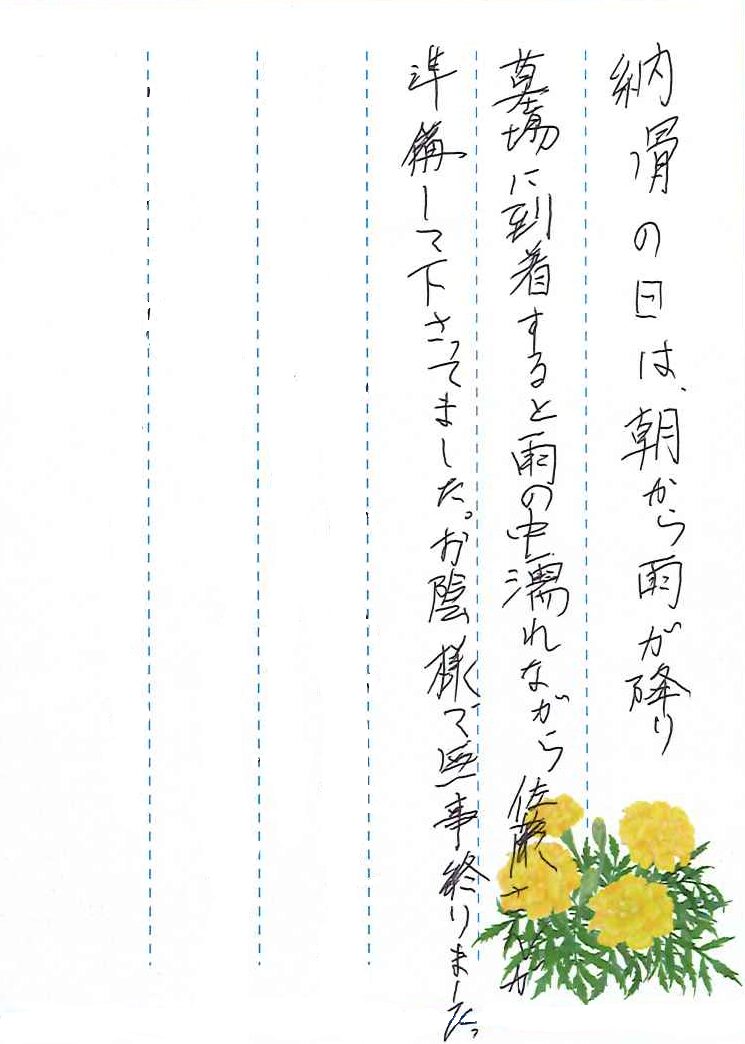 納骨の日は、朝から雨が降り
墓場に到着すると雨の中濡れながら佐藤さんが
準備して下さってました。お陰様で無事終りました。